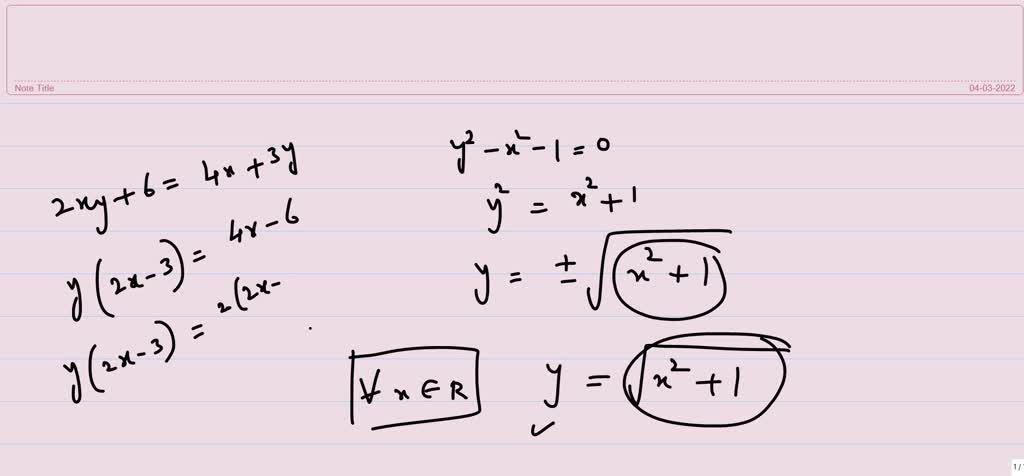 Note Title
04-03-2022
2xy + 6 = 4x + 3y
y(2x-3) = 4x-6
y(2x-3) = 2(2x-
y² - x² - 1 = 0
y² = x² + 1
y = ± √(x² + 1)
∀ x ∈ R
y = √(x² + 1)
✓